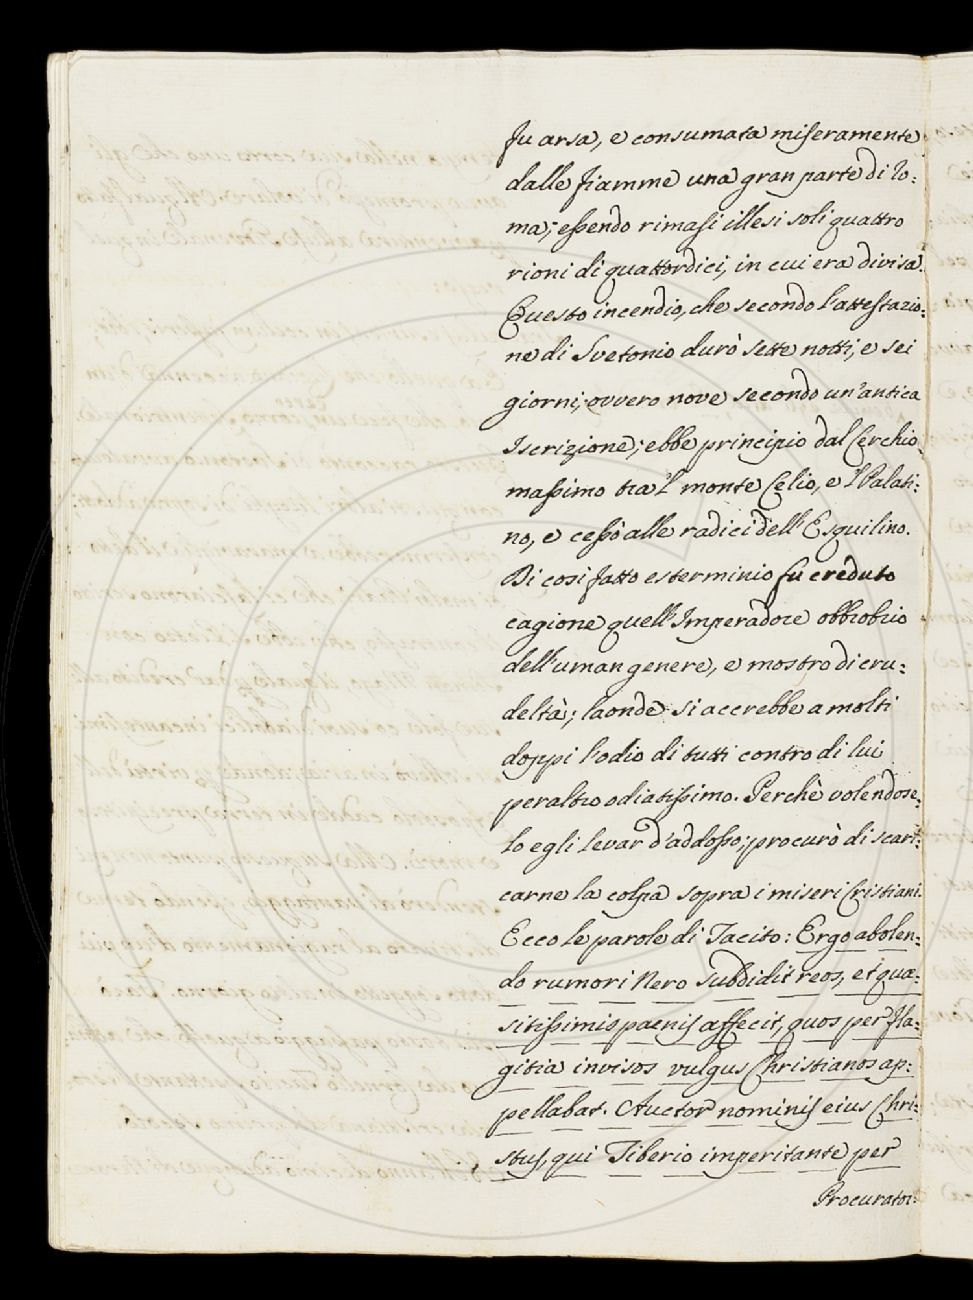 fu arsa, e consumata miseramente
dalle fiamme una gran parte di Ro:
ma; essendo rimasi illesi soli quattro
rioni di quattordici, in cui era divisa.
Questo incendio, che secondo l'attestazio:
ne di Svetonio durò sette notti, e sei
giorni; ovvero nove secondo un'antica
Iscrizione; ebbe principio dal Cerchio
massimo tra 'l monte Celio, e 'l Palati:
no, e cessò alle radici dell'Esquilino.
Di così fatto esterminio fu creduto
cagione quell'Imperadore obbrobrio
dell'uman genere, e mostro di cru:
deltà; laonde si accrebbe a molti
doppi l'odio di tutti contro di lui
peraltro odiatissimo. Perchè volendose:
lo egli levar d'addosso; procurò di scari:
carne la colpa sopra i miseri Cristiani.
Ecco le parole di Tacito: Ergo abolen:
do rumori Nero subdidit reos, et quæ:
sitissimis paenis affecit, quos per fla:
gitia invisos vulgus Christianos ap:
pellabat. Auctor nominis eius Chri:
stus, qui Tiberio imperitante per
Procurator: